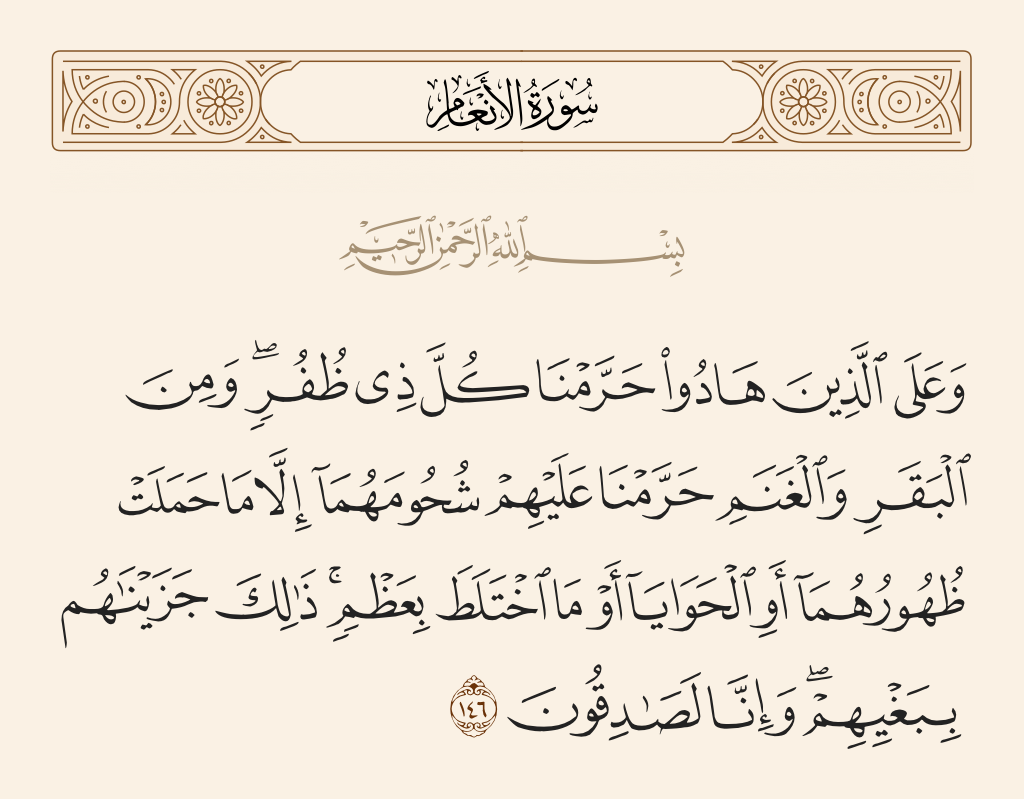 سُورَةُ الأَنْعَامِ
بِسْمِ ٱللَّهِ ٱلرَّحْمَٰنِ ٱلرَّحِيمِ
وَعَلَى ٱلَّذِينَ هَادُوا۟ حَرَّمْنَا كُلَّ ذِى ظُفُرٍۢ ۖ وَمِنَ
ٱلْبَقَرِ وَٱلْغَنَمِ حَرَّمْنَا عَلَيْهِمْ شُحُومَهُمَآ إِلَّا مَا حَمَلَتْ
ظُهُورُهُمَآ أَوِ ٱلْحَوَايَآ أَوْ مَا ٱخْتَلَطَ بِعَظْمٍۢ ۚ ذَٰلِكَ جَزَيْنَٰهُم
بِبَغْيِهِمْ ۖ وَإِنَّا لَصَٰدِقُونَ ١٤٦